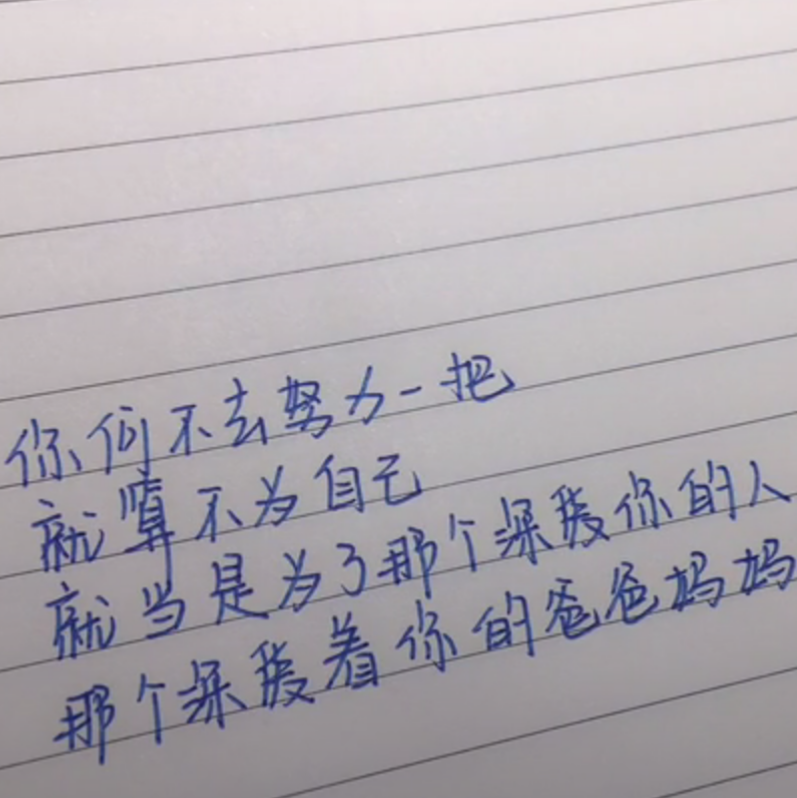 你何不去努力一把
就算不为自己
就当是为了那个深爱你的人
那个深爱着你的爸爸妈妈